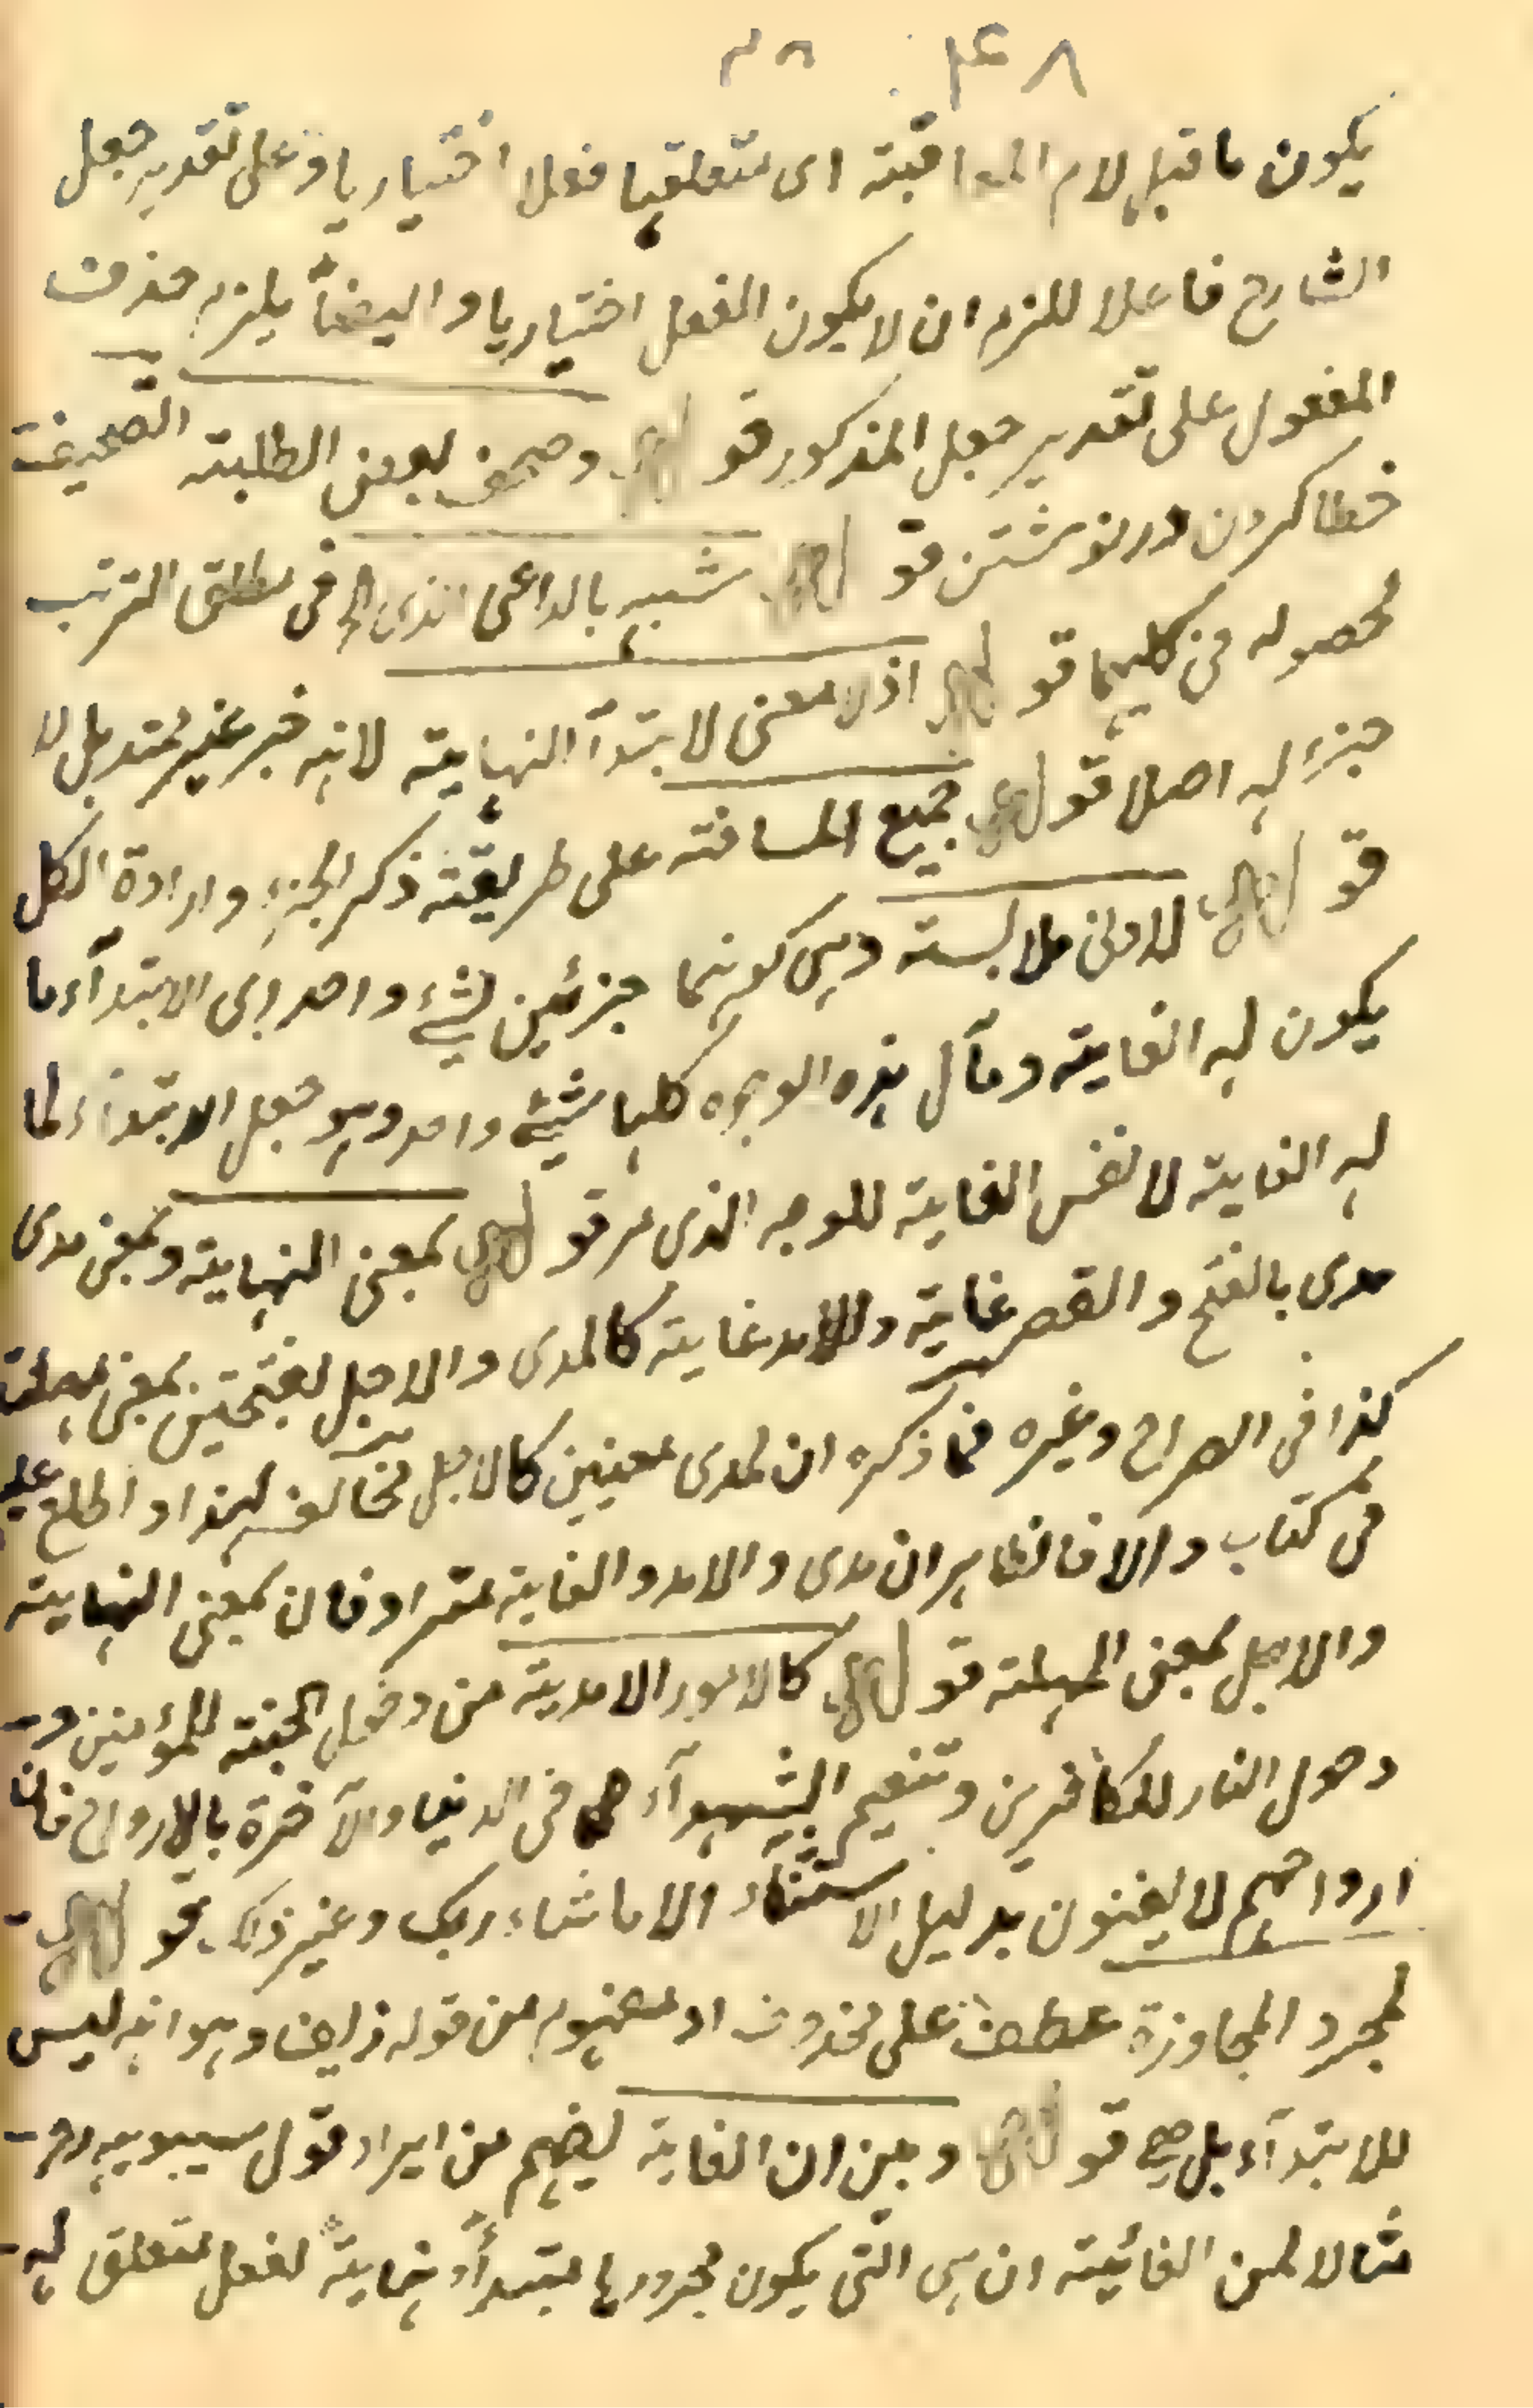 ۴۸
يكون ما قبل لام المعاقبة اى متعلقها فعلا اختياريا وعلى تقدير جعل
الشارح فاعلا للزم ان لا يكون الفعل اختياريا وايضاً يلزم حذف
المفعول على تقدير جعل المذكور قوله وصحف بعض الطلبته التصحيف
خطا كردن در نوشتن قوله شبيه بالداعى الذى فى مطلق الترتب
لحصوله من كليهما قوله اذ لا معنى لابتدآ النهاية لانه خبر غير ممتد بل لا
جزء له اصلا قوله جميع المسافته على طريقته ذكر الجزء وارادة الكل
قوله لادنى ملابسته وہى كونہما جزئين لشىء واحد اى الابتدآء ما
يكون له الغايته ومآل ہذه الوجوه كلها شىء واحد وہو جعل الابتدآء لما
له الغايته لا نفس الغايته للوجه الذى مر قوله بمعنى النهايته وبمعنى مدى
مدى بالفتح والقصر غايته والامد غايته كالمدى والاجل بفتحتين بمعنى مهلت
كذا فى الصراح وغيره فما ذكره ان لمدى معنيين كالاجل مخالف لہذا او اطلع عليه
فى كتاب والا فالظاہر ان مدى والامد والغايته مترادفان بمعنى النهايته
والاجل بمعنى المهلته قوله كالامور الابديته من دخول الجنته للمؤمنين و
دخول النار للكافرين وتنعيم الشہدآء فى الدنيا والآخرة بالارواح فان
ارواحہم لا يفنون بدليل الاستثناء الا ما شاء ربك وغير ذلك قوله
لمجرد المجاوزة عطف على محذوف او مفهوم من قوله زايف وہو انه ليس
للابتدآء بل قوله وبين ان الغاية يفہم من ايراد قول سيبويه
مثالا لمن الغائيته ان ہى التى يكون مجرورها مبتدأً ونهايتةً لفعل متعلق به